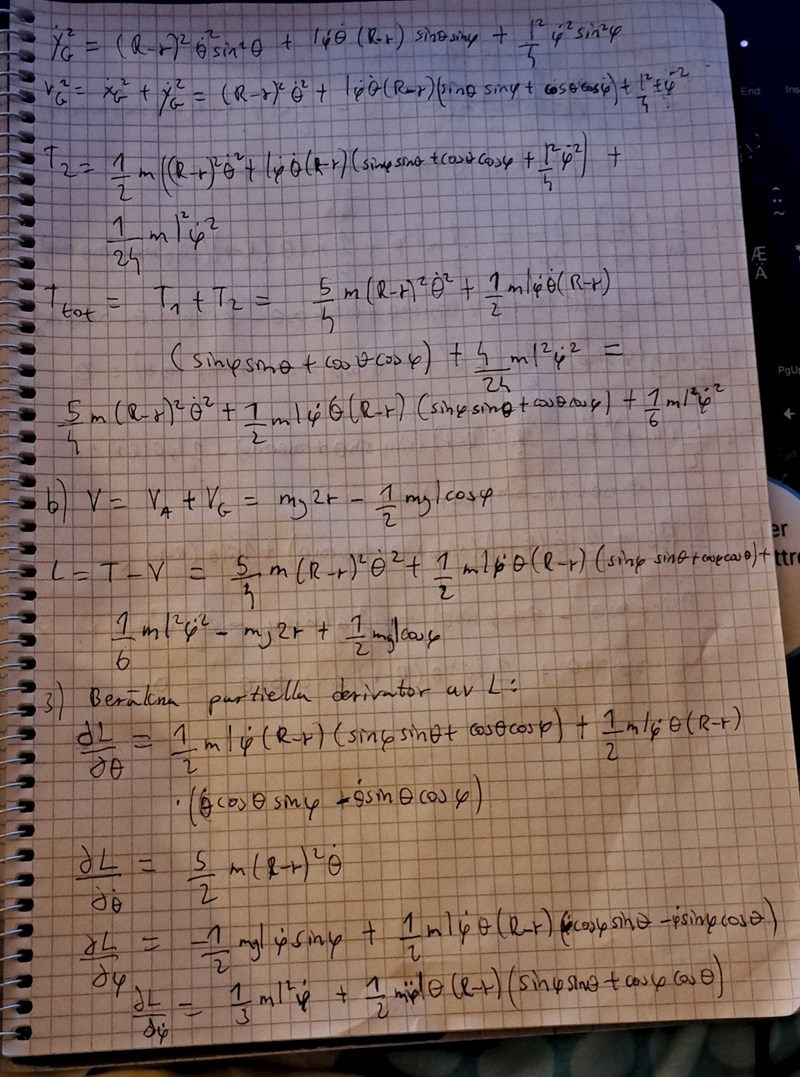 ẏ_G² = (R-r)² θ̇² sin²θ + lφ̇θ̇ (R-r) sinθ sinφ + l²/4 φ̇² sin²φ
v_G² = ẋ_G² + ẏ_G² = (R-r)² θ̇² + lφ̇θ̇(R-r)(sinθ sinφ + cosθ cosφ) + l²/4 φ̇²
T₂ = 1/2 m((R-r)² θ̇² + lφ̇θ̇(R-r)(sinφ sinθ + cosθ cosφ + l²/4 φ̇²) +
1/24 ml²φ̇²
T_tot = T₁ + T₂ = 5/4 m(R-r)² θ̇² + 1/2 mlφ̇θ̇(R-r)
(sinφ sinθ + cosθ cosφ) + 4/24 ml²φ̇² =
5/4 m(R-r)² θ̇² + 1/2 mlφ̇θ̇(R-r) (sinφ sinθ + cosθ cosφ) + 1/6 ml²φ̇²
b) V = V_A + V_G = mg2r - 1/2 mgl cosφ
L = T - V = 5/4 m(R-r)² θ̇² + 1/2 mlφ̇θ(R-r) (sinφ sinθ + cosφ cosθ) +
1/6 ml²φ̇² - mg2r + 1/2 mgl cosφ
3) Beräkna partiella derivator av L:
∂L/∂θ = 1/2 mlφ̇(R-r)(sinφ sinθ + cosθ cosφ) + 1/2 mlφ̇θ(R-r)
·(θ̇cosθ sinφ - θ̇sinθ cosφ)
∂L/∂θ̇ = 5/2 m(R-r)² θ̇
∂L/∂φ = -1/2 mgl φ̇ sinφ + 1/2 mlφ̇θ(R-r)(φ̇cosφ sinθ - φ̇sinφ cosθ)
∂L/∂φ̇ = 1/3 ml²φ̇ + 1/2 mφ̈lθ(R-r)(sinφ sinθ + cosφ cosθ)
End
Ins
Æ
Ä
PgUp
er
ttre